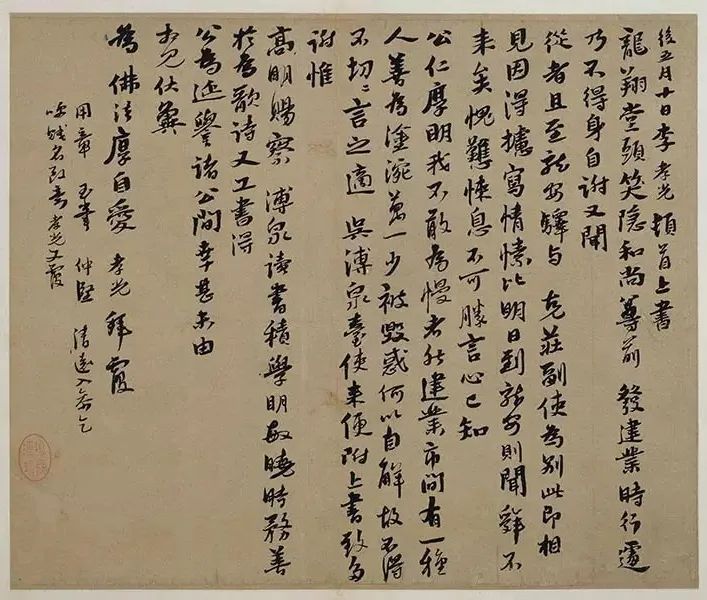 後五月十日李孝光頓首上書
龍翔堂頭笑隐和尚尊前 發建業時行遽
乃不得身自谢又闻
從者且至龍安驛与 克莊副使為别此即相
見因得攄寫情愫比明日到龍安則聞舜不
来矣愧難悚息不可勝言心已知
公仁厚明我不敢為慢者然建業市間有一種
人善為塗涴萬一少被毁惑何以自解故不得
不切切言之適 吳溥泉臺使来便附上書致多
谢惟
高明赐察 溥泉读書積學明敏曉時務善
於為歌诗又工書得
公為延譽諸公間幸甚未由
去見伏冀
為佛法厚自爱 孝光拜覆
用章 玉章 仲堅 清遠
名政 孝光又覆